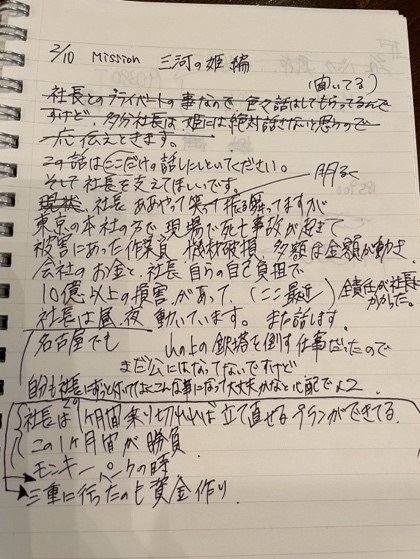 2/10 Mission 三河の姫編
(聞いてる)
社長とのプライベートの事なので、色々話はしてもらってるんで
すけど、多分社長は姫には絶対話さないと思うので
一応伝えときます。
この話はここだけの話しにしといてください。
そして社長を支えてほしいです。
明るく
社長 ああやって笑って振る舞ってますが
東京の本社の方で現場で死亡事故が起きて
被害にあった作業員 機材破損 多額な金額が動き
会社のお金と、社長自らの自己負担で
10億以上の損害があって、(ここ最近) 全責任が社長に
かかった。
社長は昼、夜 動いています。また話します。
名古屋でも
の鉄塔を倒す仕事だったので
まだ公にはなってないですけど
自分も社長にずっとついてよくこんな事になって大丈夫かなと心配で
社長は 1ヶ月間乗り切れれば立て直せるプランができてる。
この1ヶ月間が勝負
モンキーパークの時
三重に行ったのも資金作り。